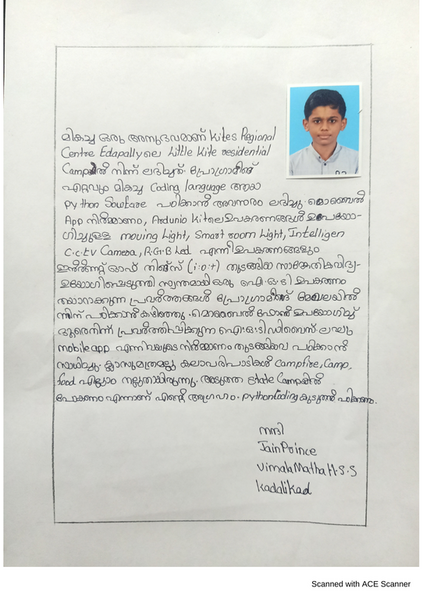 മികച്ച ഒരു അനുഭവമാണ് Kites Regional
Centre Edapally ലെ Little Kite residential
Campൽ നിന്ന് ലഭിച്ചത്. പ്രോഗ്രാമിങ്ങ്
ഏറ്റവും മികച്ച Coding language ആയ
python Soutare പഠിക്കാൻ അവസരം ലഭിച്ചു. മൊബൈൽ
App നിർമ്മാണം, Ardunio Kitലെ ഉപകരണങ്ങൾ ഉപയോ-
ഗിച്ചുള്ള moving Light, Smart room Light, Intelligen
C.C.t.V Camera, R.G.B Led എന്നീ ഉപകരണങ്ങളും
ഇൻ്റർനെറ്റ് ഓഫ് തിങ്ങ്സ് (i.o.t) തുടങ്ങിയ സാങ്കേതികവിദ്യ-
ഉപയോഗപ്പെടുത്തി സ്വന്തമായി ഒരു ഐ.ഒ.ടി ഉപകരണം
തയാറാക്കുന്ന പ്രവർത്തങ്ങൾ പ്രോഗ്രാമിങ്ങ് മേഖലയിൽ
നിന്ന് പഠിക്കാൻ കഴിഞ്ഞു. മൊബൈൽ ഫോൺ ഉപയോഗിച്ച്
ദൂരെനിന്ന് പ്രവർത്തിപ്പിക്കുന്ന ഐ.ഒ.ടി ഡിവൈസ്
mobile app എന്നിവയുടെ നിർമ്മാണം തുടങ്ങിയവ പഠിക്കാൻ
സാധിച്ചു. ക്ലാസുമാത്രമല്ല കലാപരിപാടികൾ Campfire, Camp,
food എല്ലാം നല്ലതായിരുന്നു. അടുത്ത state Campൽ
പോകണം എന്നാണ് എൻ്റെ ആഗ്രഹം. python Coding കൂടുതൽ പഠിക്കണം.
നന്ദി
Jain Prince
Vimala Matha H.S.S
Kadalikad
Scanned with ACE Scanner